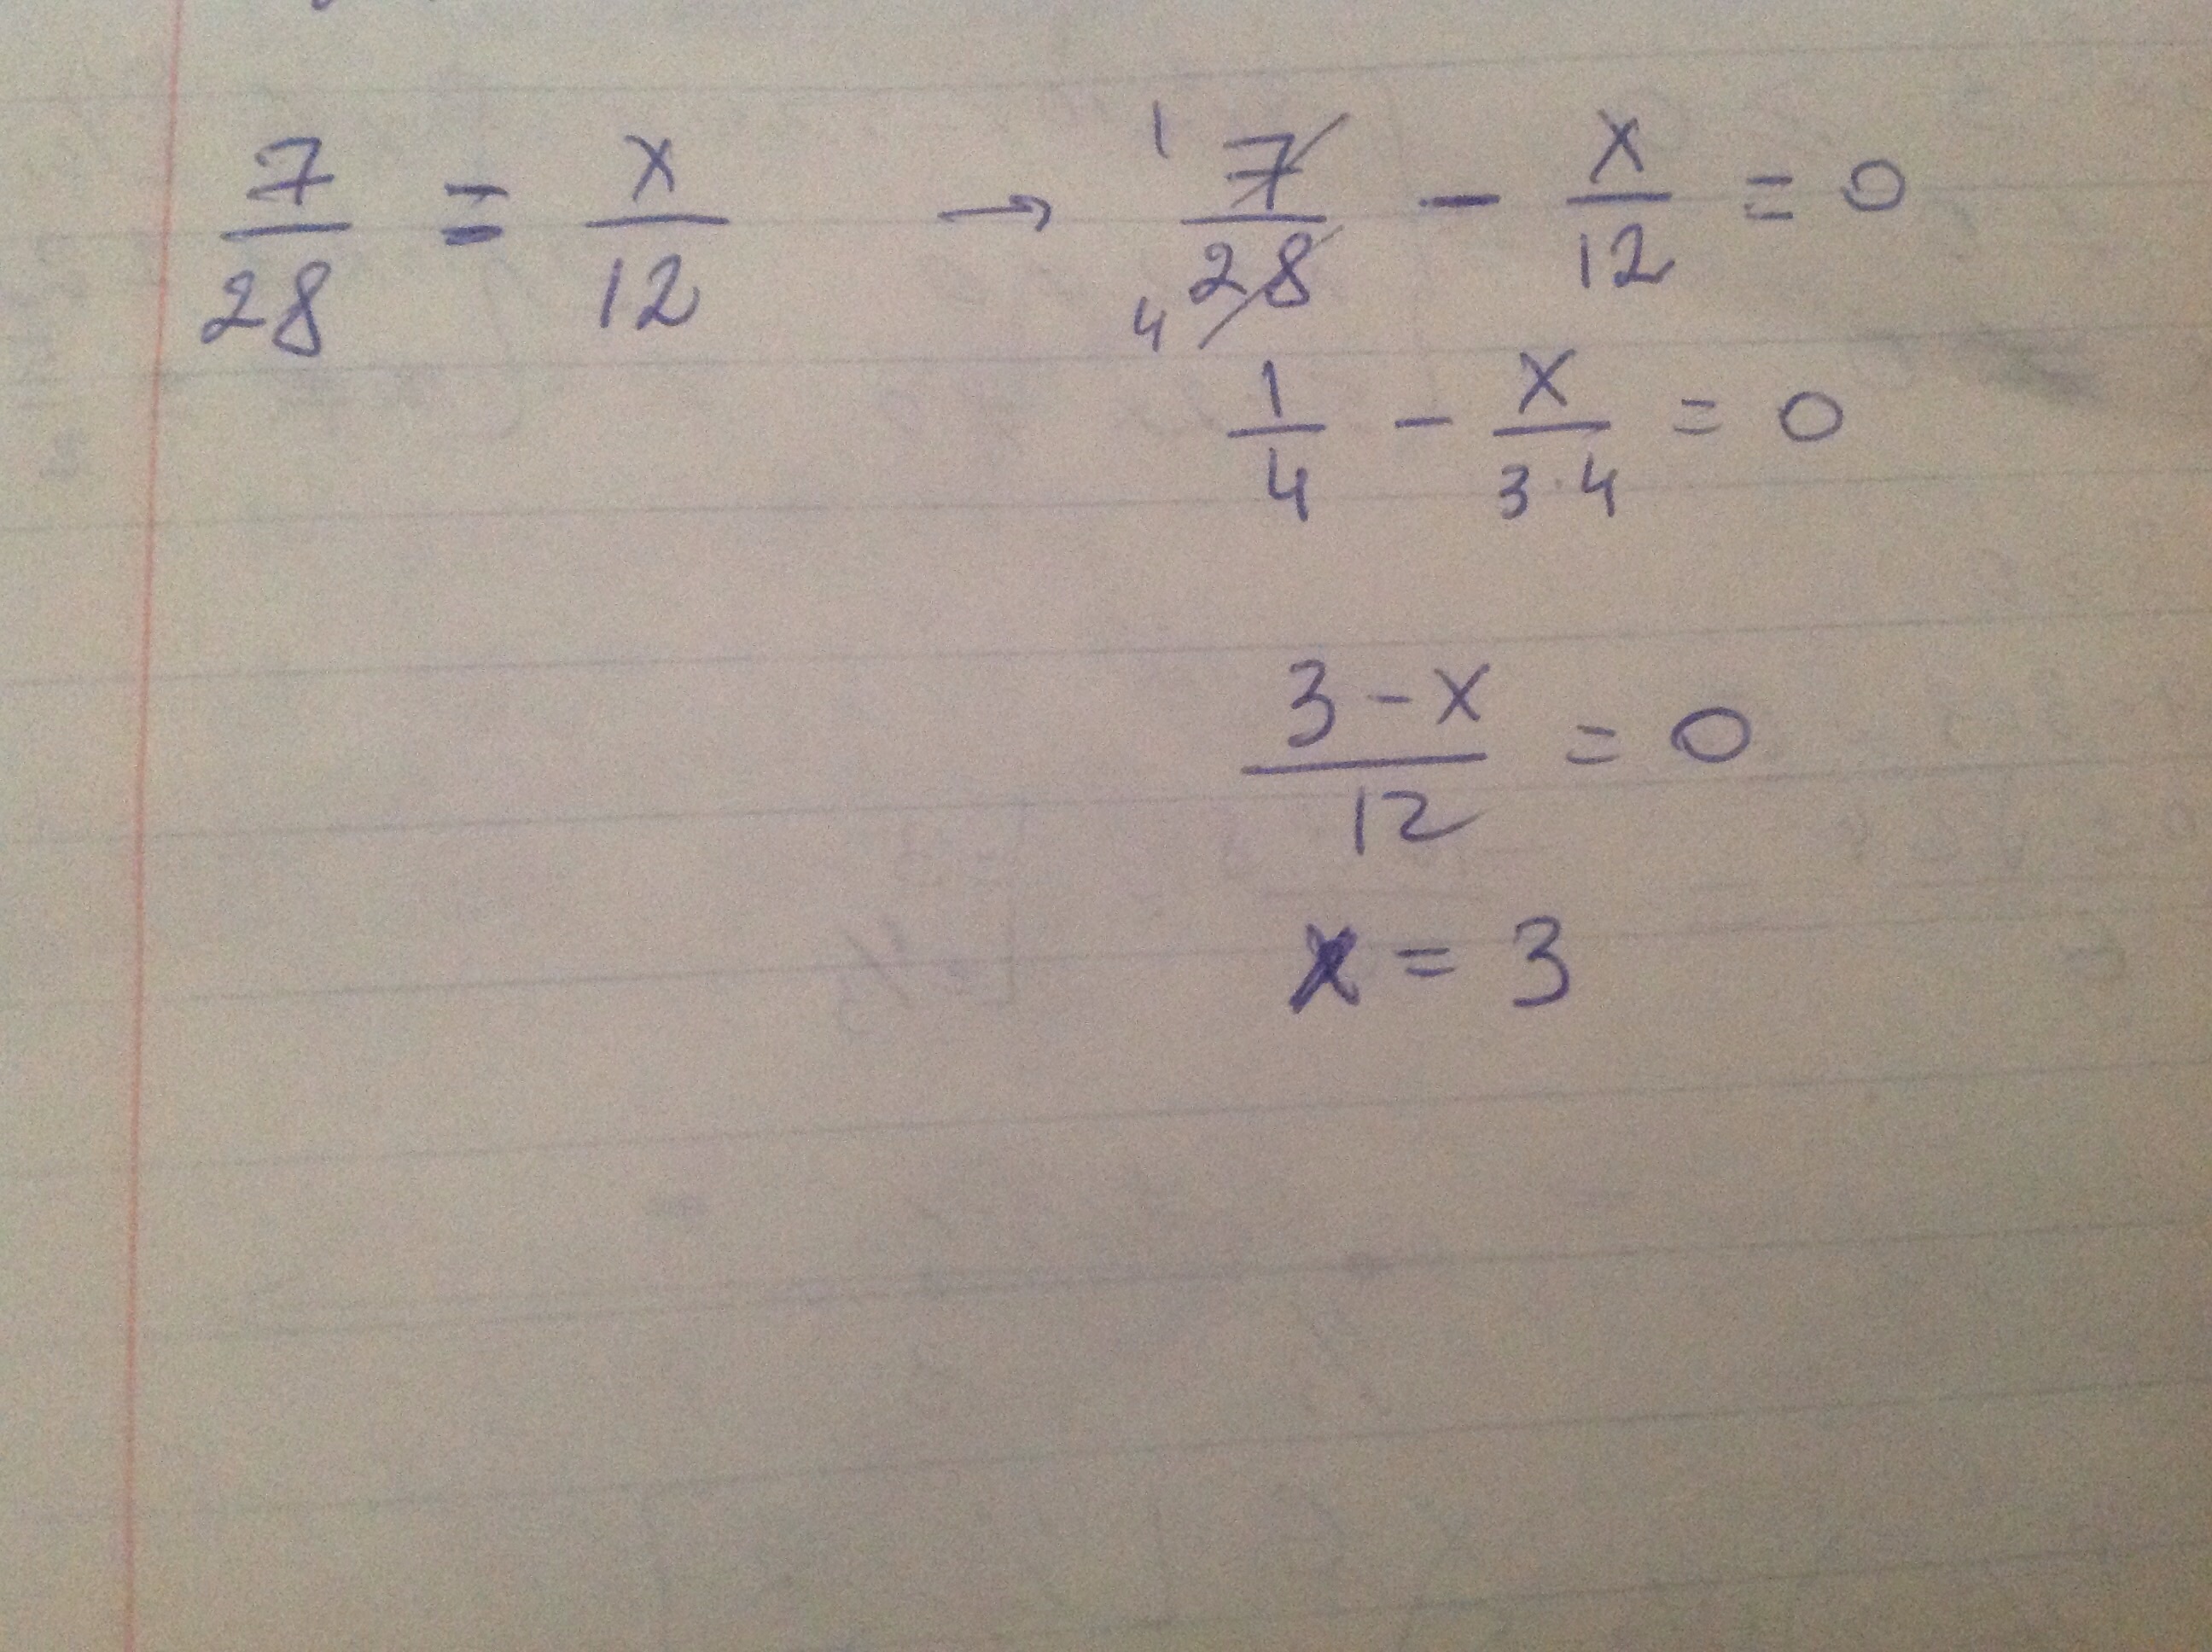 7/28 = x/12 → 1 7/28 4 - x/12 = 0
1/4 - x/3·4 = 0
3-x/12 = 0
x = 3